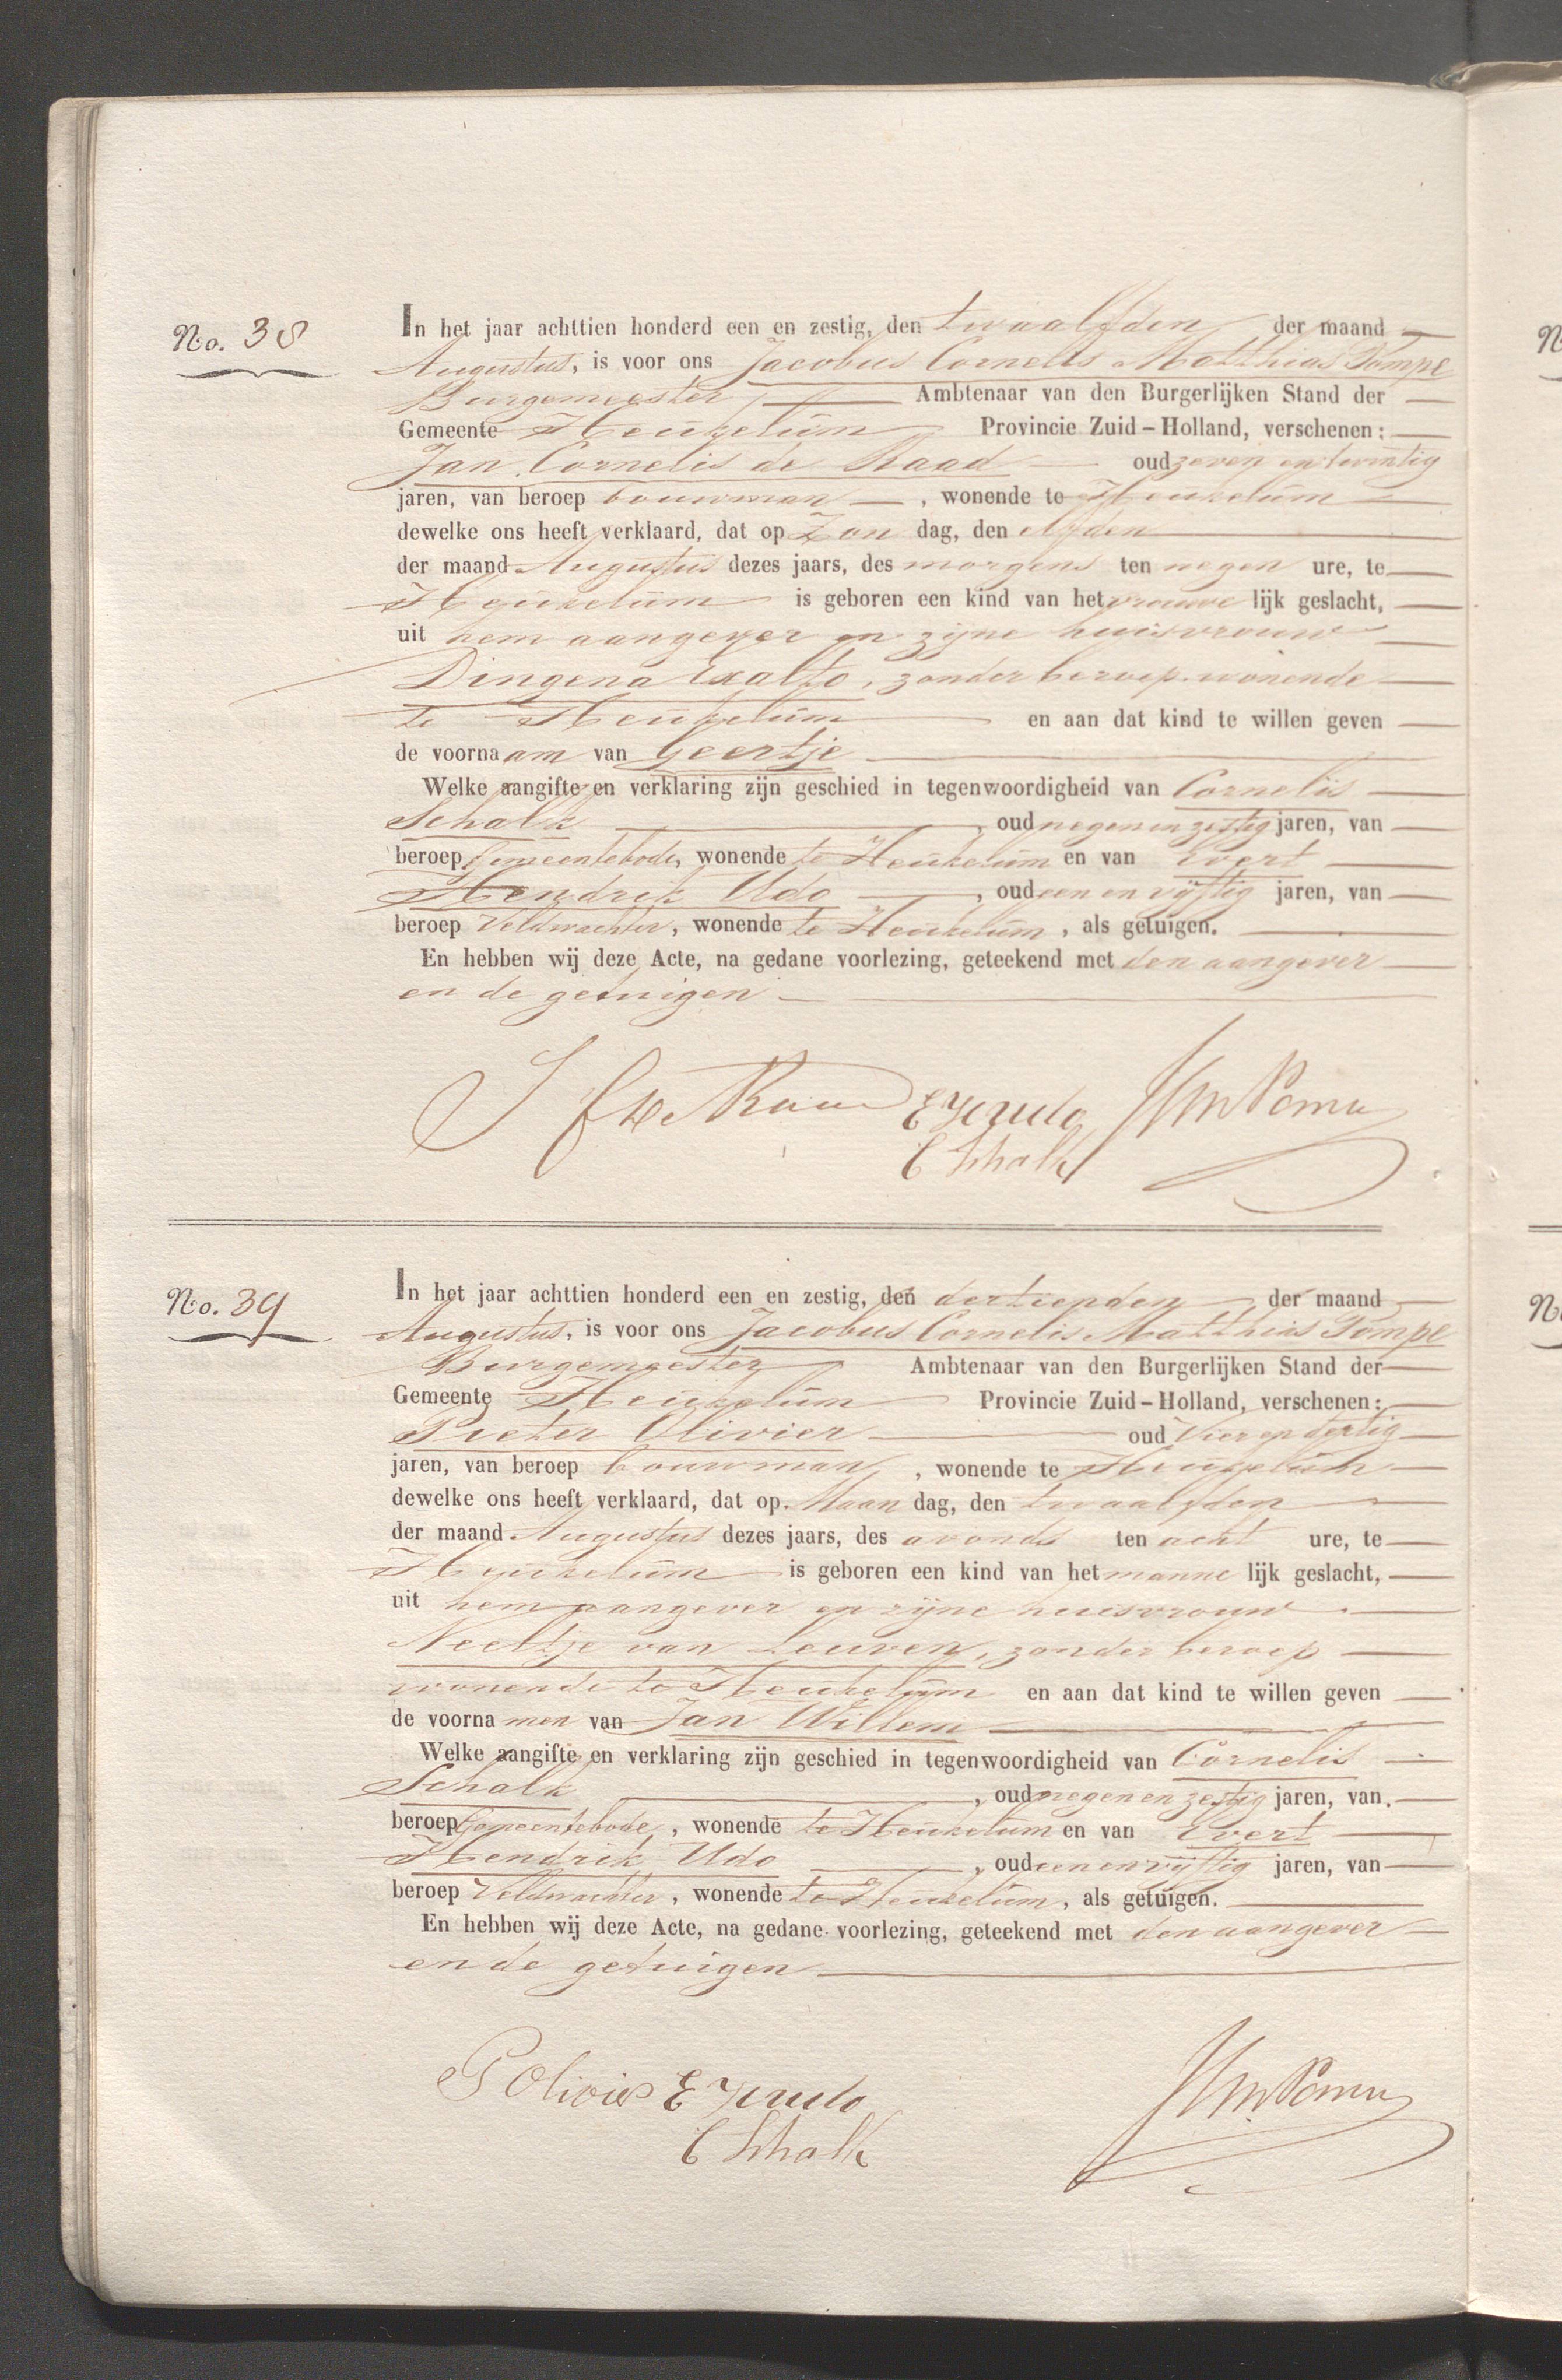 No. 38
In het jaar achttien honderd een en zestig, den twaalfden der maand
Augustus, is voor ons Jacobus Cornelis Matthias Pompe
Burgemeester Ambtenaar van den Burgerlijken Stand der
Gemeente Heukelum Provincie Zuid-Holland, verschenen:
Jan Cornelis de Raad oud zeven en twintig
jaren, van beroep bouwman, wonende te Heukelum
dewelke ons heeft verklaard, dat op Zon dag, den elfden
der maand Augustus dezes jaars, des morgens ten negen ure, te
Heukelum is geboren een kind van het vrouwe lijk geslacht,
uit hem aangever en zijne huisvrouw
Dingena Exalto, zonder beroep wonende
te Heukelum en aan dat kind te willen geven
de voornaam van Geertje
Welke aangifte en verklaring zijn geschied in tegenwoordigheid van Cornelis
Schalk, oud negen en zestig jaren, van
beroep Gemeentebode, wonende te Heukelum en van Evert
Hendrik Udo, oud een en vijftig jaren, van
beroep Veldwachter, wonende te Heukelum, als getuigen.
En hebben wij deze Acte, na gedane voorlezing, geteekend met den aangever
en de getuigen
J C de Raad E H Udo JCM Pompe
C Schalk
No. 39
In het jaar achttien honderd een en zestig, den dertienden der maand
Augustus, is voor ons Jacobus Cornelis Matthias Pompe
Burgemeester Ambtenaar van den Burgerlijken Stand der
Gemeente Heukelum Provincie Zuid-Holland, verschenen:
Pieter Olivier oud Vier en dertig
jaren, van beroep bouwman, wonende te Heukelum
dewelke ons heeft verklaard, dat op Maan dag, den twaalfden
der maand Augustus dezes jaars, des avonds ten acht ure, te
Heukelum is geboren een kind van het manne lijk geslacht,
uit hem aangever en zijne huisvrouw
Neeltje van Leuven, zonder beroep
wonende te Heukelum en aan dat kind te willen geven
de voornamen van Jan Willem
Welke aangifte en verklaring zijn geschied in tegenwoordigheid van Cornelis
Schalk, oud negen en zestig jaren, van
beroep Gemeentebode, wonende te Heukelum en van Evert
Hendrik Udo, oud een en vijftig jaren, van
beroep Veldwachter, wonende te Heukelum, als getuigen.
En hebben wij deze Acte, na gedane voorlezing, geteekend met den aangever
en de getuigen
P Olivier E H Udo JCM Pompe
C Schalk